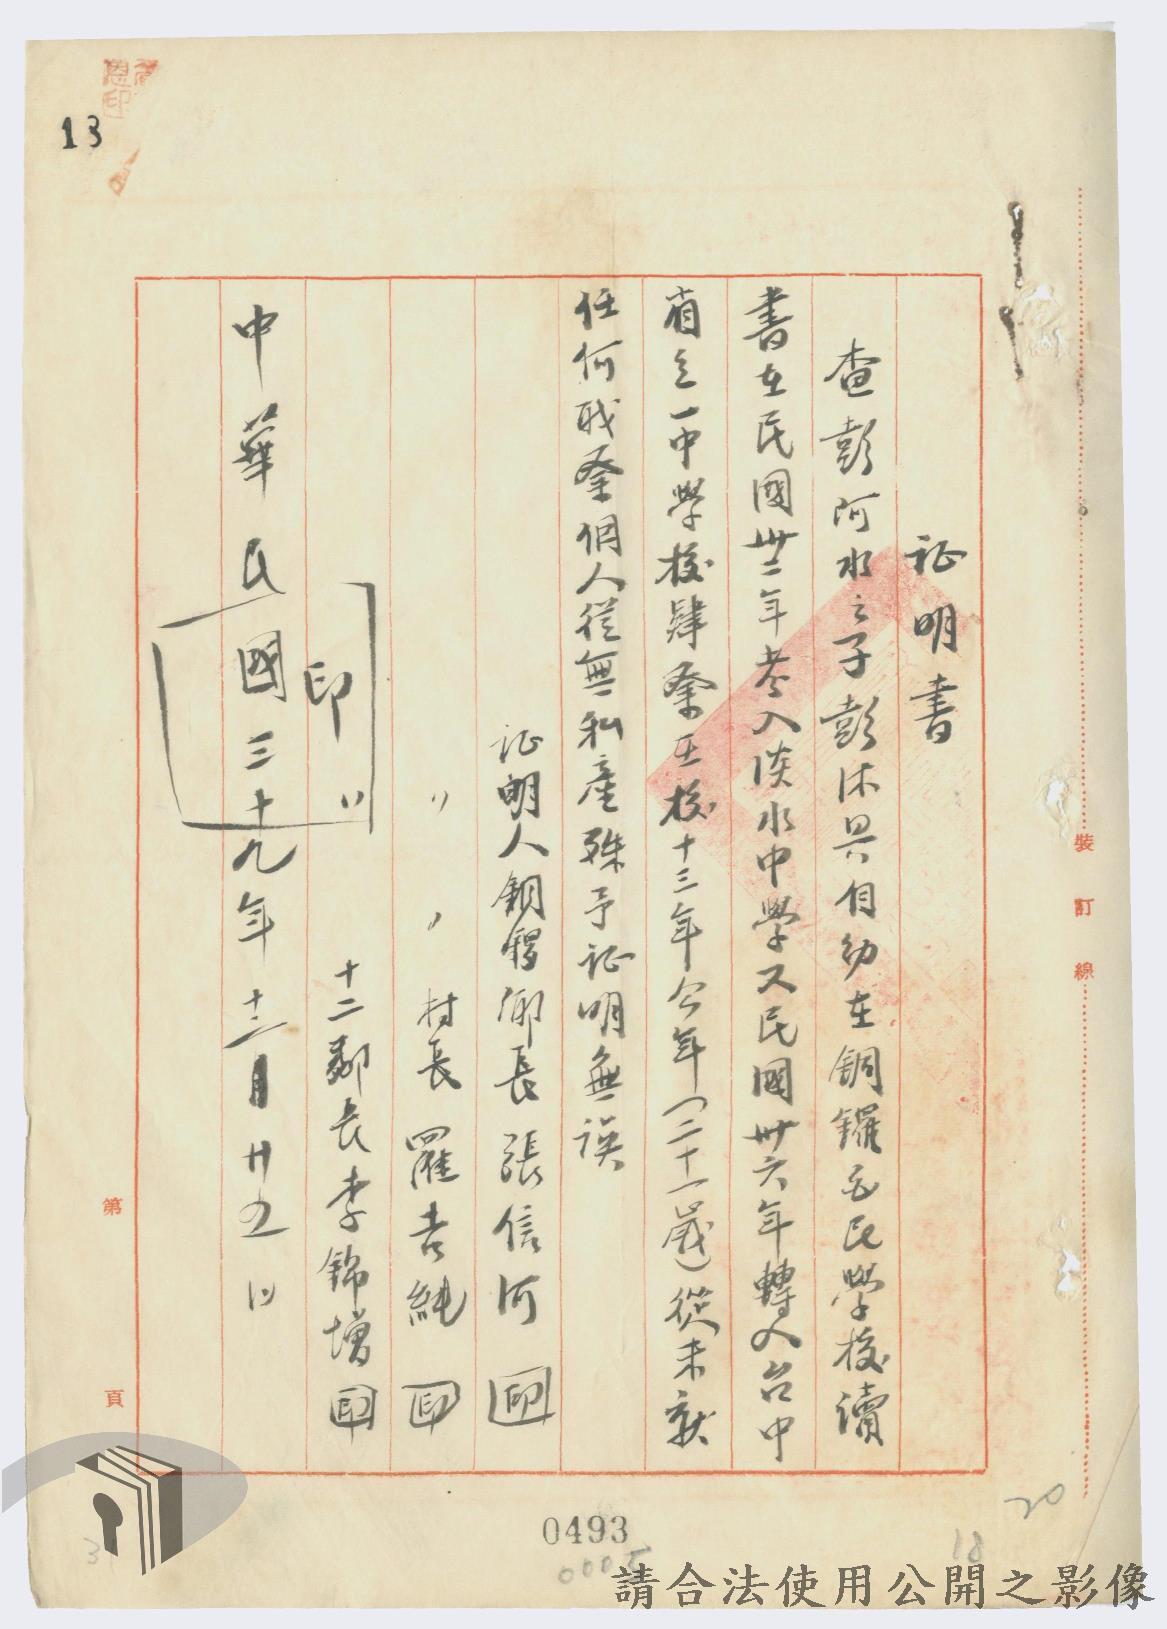 证明書
查彭阿水之子彭沐興自幼在銅鑼国民学校讀
書在民國卅二年考入淡水中學又民國卅六年轉入台中
省立一中學校肄業在校十三年今年(二十一歲)從未就
任何职業個人從無私產殊予证明無误
证明人銅鑼鄉長張信河 印
〃 〃 村長羅吉純 印
十二鄰長李錦增 印
印
中華民國三十九年十二月廿五日
13
裝訂線
第 頁
0493
20
18
請合法使用公開之影像